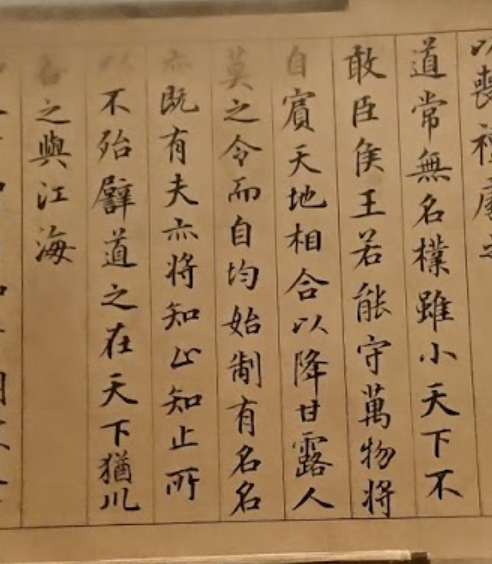 以喪禮處之
道常無名樸雖小天下不
敢臣侯王若能守萬物將
自賓天地相合以降甘露人
莫之令而自均始制有名名
亦既有夫亦將知止知止所
以不殆譬道之在天下猶川
谷之與江海